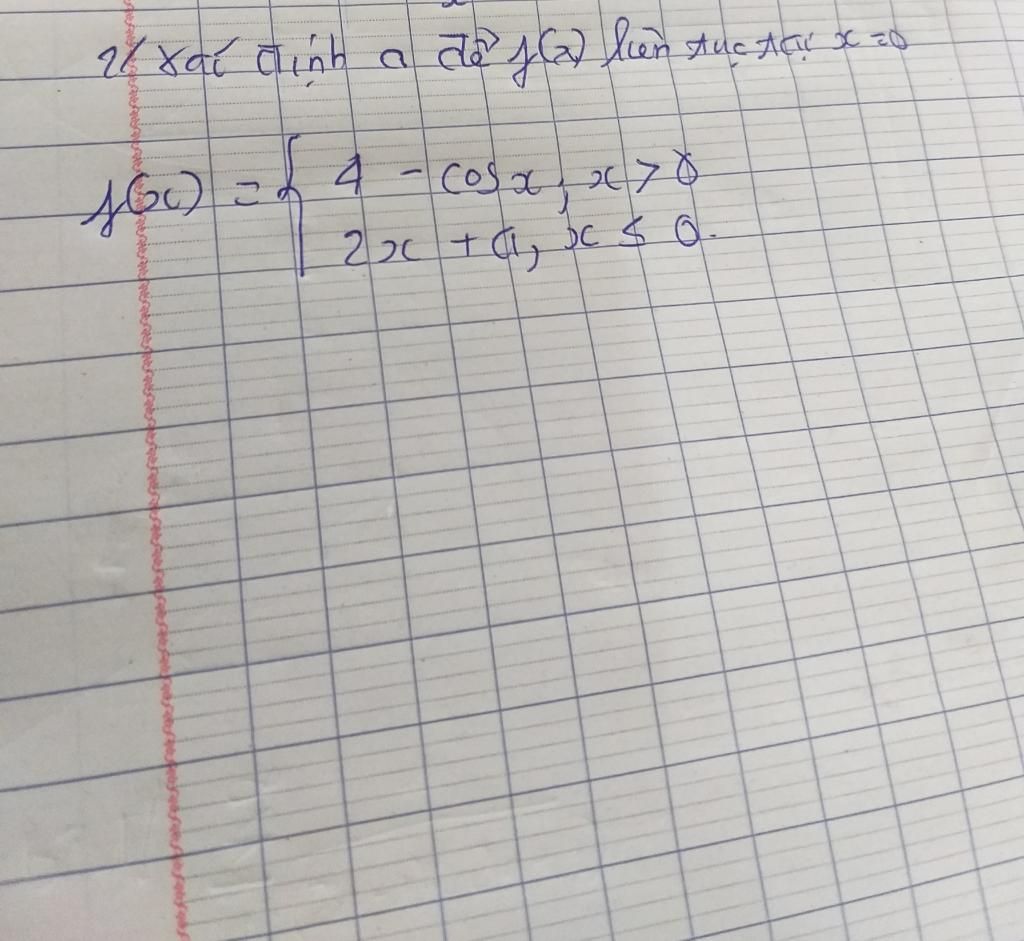 2/ Xác định a để f(x) liên tục tại x = 0
f(x) = { 4 - cos x, x > 0
2x + a, x ≤ 0.